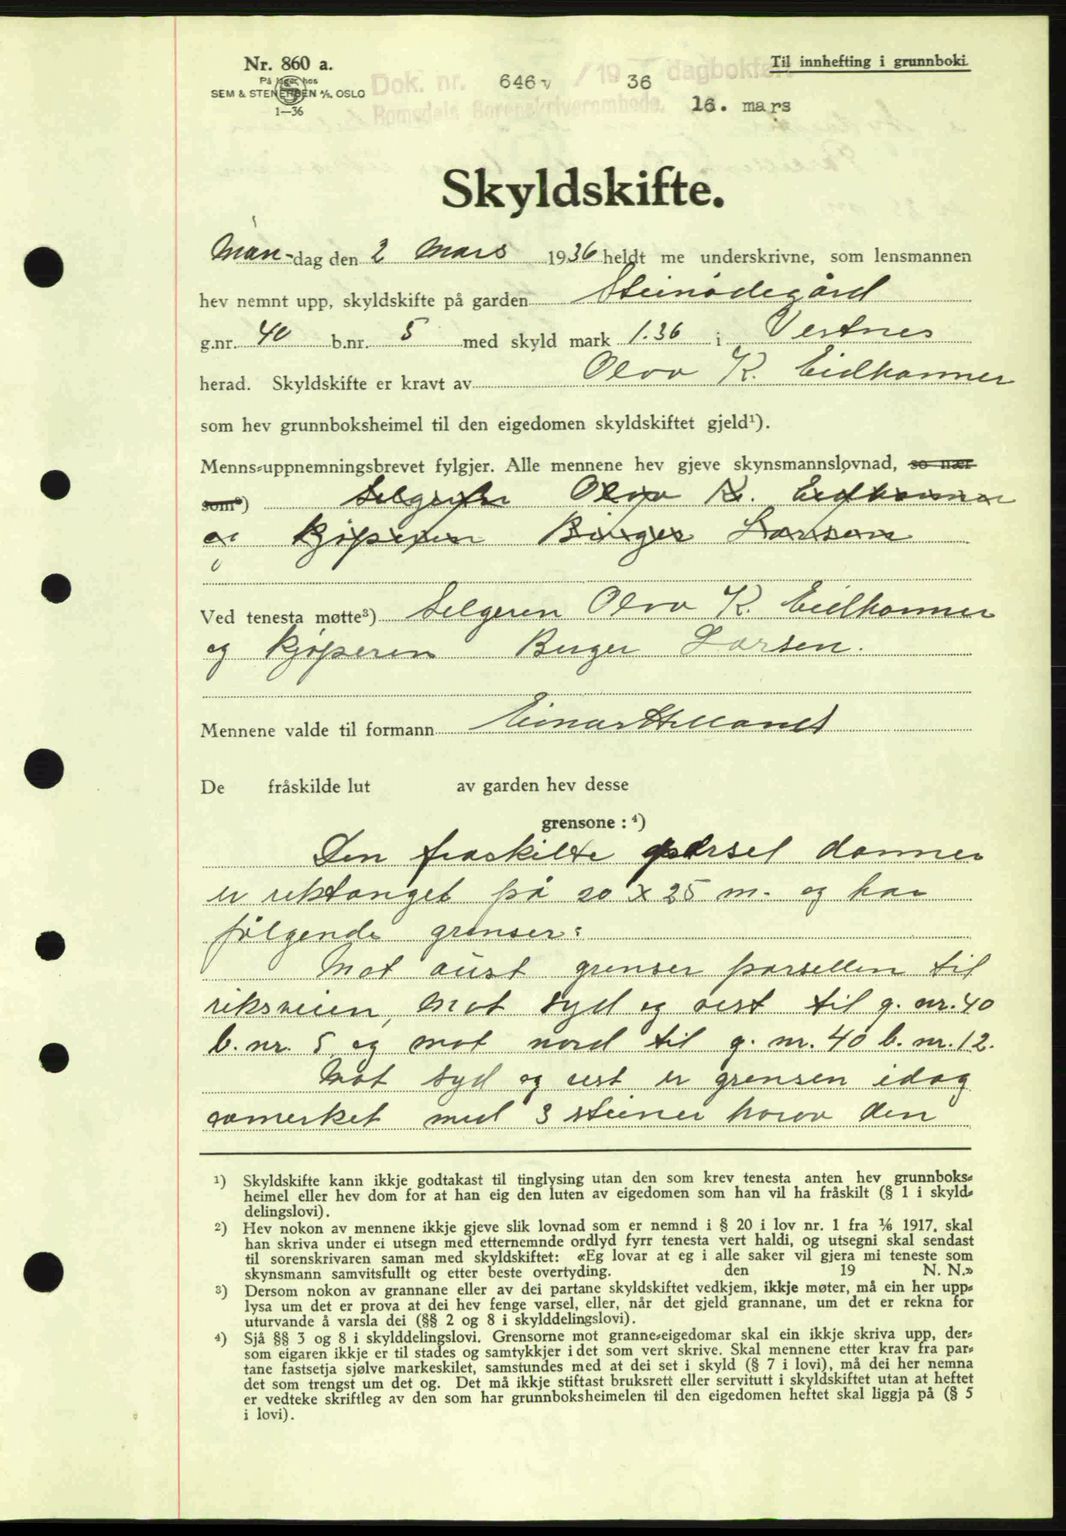 Nr. 860 a.
På lager hos
SEM & STENERSEN A/S. OSLO
1—36
Til innhefting i grunnboki.
Dok. nr. 646 /19 36 dagbokført
Romsdals Sorenskriverembede.
16. mars
Skyldskifte.
Mån-dag den 2 Mars 1936 heldt me underskrivne, som lensmannen
hev nemnt upp, skyldskifte på garden Steinødegård
g.nr. 40 b.nr. 5 med skyld mark 1.36 i Vestnes
herad. Skyldskifte er kravt av Olva K. Eidhammer
som hev grunnboksheimel til den eigedomen skyldskiftet gjeld¹).
Menns-uppnemningsbrevet fylgjer. Alle mennene hev gjeve skynsmannslovnad, so nær
som²) Selgeren Olva K. Eidhammer
og kjøperen Birger Larsen
Ved tenesta møtte³) Selgeren Olva K. Eidhammer
og kjøperen Birger Larsen.
Mennene valde til formann Einar Helland
De fråskilde lut av garden hev desse
grensone : ⁴)
Den fraskilte parsel danner
er rektanget på 20 x 25 m. og har
følgende grenser:
Mot aust grenser parsellen til
riksveien, Mot syd og vest til g. nr. 40
b. nr. 5 og mot nord til g. nr. 40 b. nr. 12.
Mot syd og vest er grensen idag
avmerket med 3 steiner hvorav den
¹) Skyldskifte kann ikkje godtakast til tinglysing utan den som krev tenesta anten hev grunnboks-
heimel eller hev dom for at han eig den luten av eigedomen som han vil ha fråskilt (§ 1 i skyld-
delingslovi).
²) Hev nokon av mennene ikkje gjeve slik lovnad som er nemnd i § 20 i lov nr. 1 fra 1/6 1917, skal
han skriva under ei utsegn med etternemnde ordlyd fyrr tenesta vert haldi, og utsegni skal sendast
til sorenskrivaren saman med skyldskiftet: «Eg lovar at eg i alle saker vil gjera mi teneste som
skynsmann samvitsfullt og etter beste overtyding. den 19 N. N.»
³) Dersom nokon av grannane eller av dei partane skyldskiftet vedkjem, ikkje møter, må ein her upp-
lysa um det er prova at dei hev fenge varsel, eller, når det gjeld grannane, um det er rekna for
uturvande å varsla dei (§§ 2 og 8 i skylddelingslovi).
⁴) Sjå §§ 3 og 8 i skylddelingslovi. Grensorne mot granne-eigedomar skal ein ikkje skriva upp, der-
som eigaren ikkje er til stades og samtykkjer i det som vert skrive. Skal mennene etter krav fra par-
tane fastsetja sjølve markeskilet, samstundes med at dei set i skyld (§ 7 i lovi), må dei her nemna
det som trengst um det og. Det må ikkje stiftast bruksrett eller servitutt i skyldskiftet utan at heftet
er vedteke skriftleg av den som har grunnboksheimelen til den eigedomen heftet skal liggja på (§ 5
i lovi).